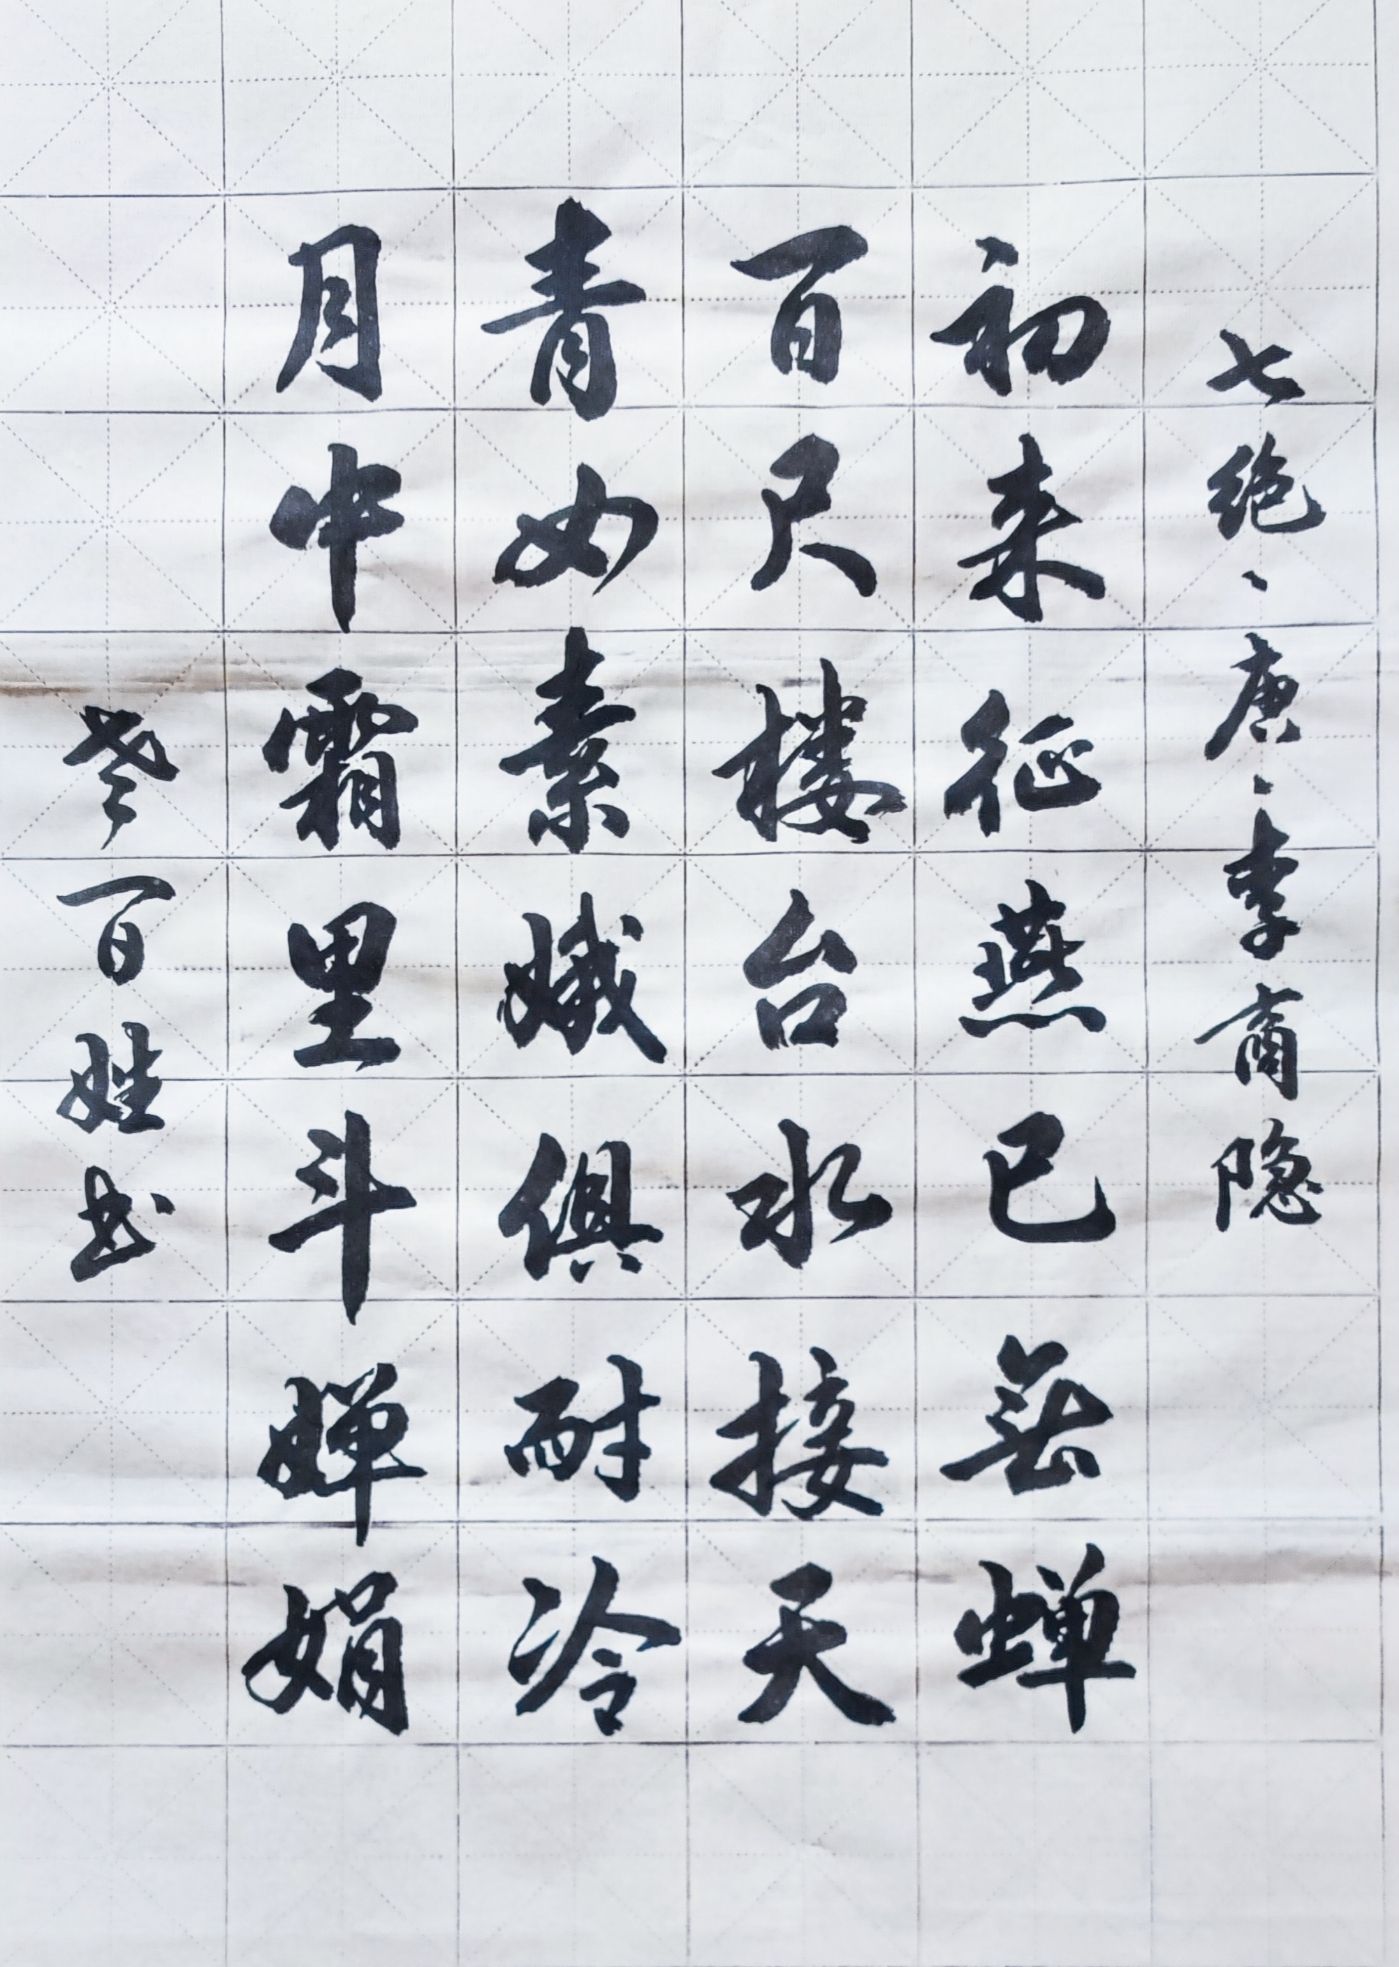 七绝、唐、李商隐
初来征燕已无蝉
百尺楼台水接天
青女素娥俱耐冷
月中霜里斗婵娟
老百姓书